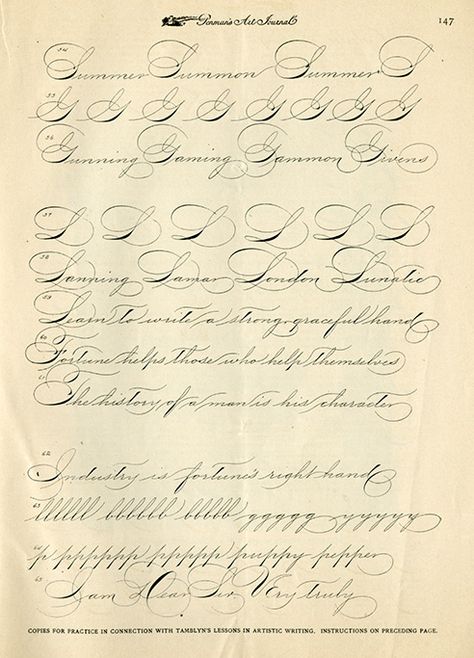 Penman's Art Journal 147
54 Summer Summon Summer S
55 G G G G G G G G
56 Gunning Gaming Gammon Givens
57 L L L L L L
58 Lanning Lamar London Lunatic
59 Learn to write a strong graceful hand
60 Fortune helps those who help themselves
61 The history of a man is his character
62 Industry is fortune's right hand
63 llllll bbbbbb bbbbb ggggg yyyyy
64 p pppppp ppppp puppy pepper
65 I am Dear Sir Very truly
COPIES FOR PRACTICE IN CONNECTION WITH TAMBLYN'S LESSONS IN ARTISTIC WRITING. INSTRUCTIONS ON PRECEDING PAGE.